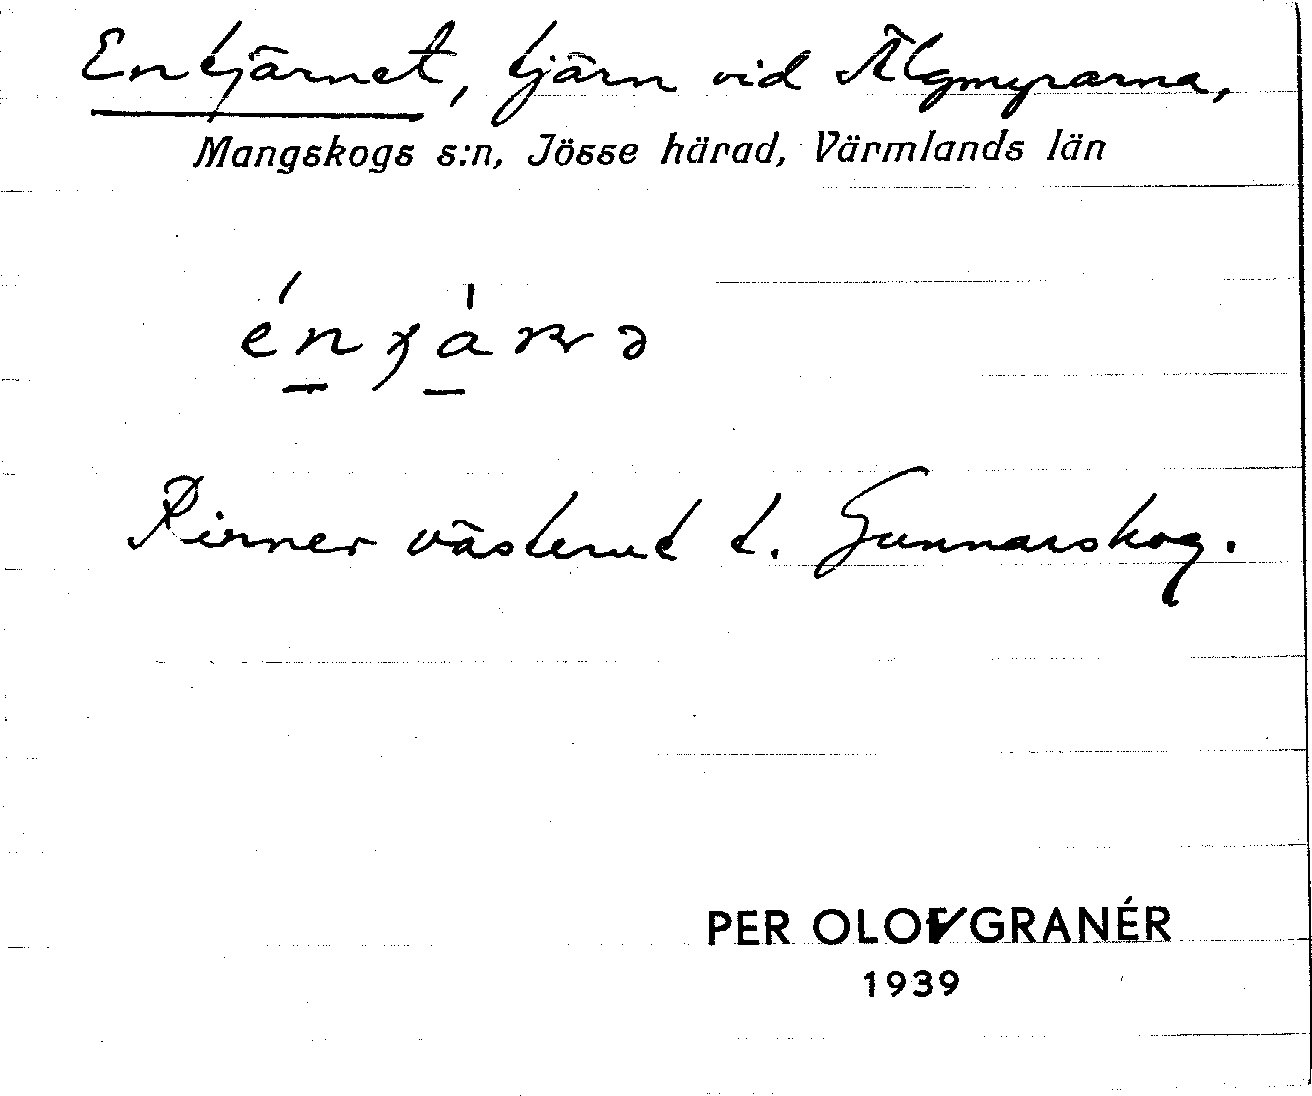 Entjärnet, tjärn vid Älgmyrarna,
Mangskogs s:n, Jösse härad, Värmlands län
Rinner västerut t. Gunnarskog.
PER OLOV GRANÉR
1939